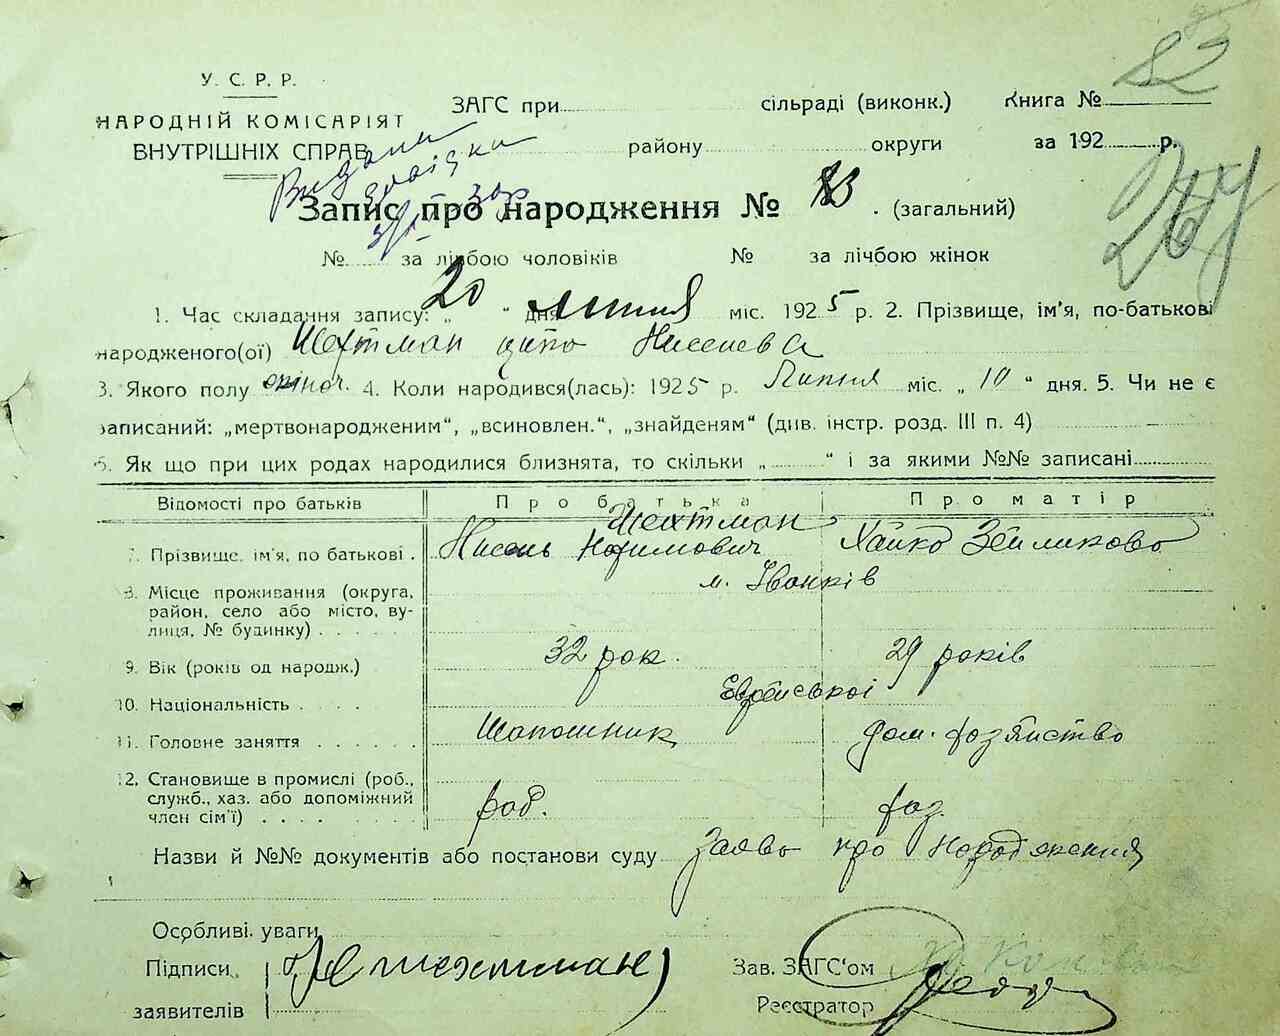 У. С. Р. Р.
НАРОДНІЙ КОМІСАРІЯТ
ВНУТРІШНІХ СПРАВ
ЗАГС при сільраді (виконк.) Книга № 83
району округи за 192 р.
Видана
Запис про народження № 83. (загальний)
№ за лічбою чоловіків № за лічбою жінок
1. Час складання запису: „20“ дня липня міс. 1925 р. 2. Прізвище, ім'я, по-батькові
народженого(ої) Шехтман Ципа Нисенева
3. Якого полу жіноч. 4. Коли народився(лась): 1925 р. Липня міс. „10“ дня. 5. Чи не є
записаний: „мертвонародженим“, „всиновлен.“, „знайденям“ (див. інстр. розд. III п. 4)
6. Як що при цих родах народилися близнята, то скільки „ “ і за якими №№ записані
Відомості про батьків Про батька Про матір
Шехтман
7. Прізвище, ім'я, по батькові . Нисень Нахимович Хайка Зейликова
м. Іванків
8. Місце проживання (округа,
район, село або місто, ву-
лиця, № будинку) . . . . .
9. Вік (років од народж.) 32 рок. 29 років
10. Національність . . . . Еврейської
11. Головне заняття . . . . . . Шапошник дом. хозяйство
12. Становище в промислі (роб.,
служб., хаз. або допоміжний
член сім'ї) . . . . роб. хаз.
Назви й №№ документів або постанови суду Заява про Народження
Особливі уваги
Підписи Шехтман Зав. ЗАГС'ом
заявителів Реєстратор